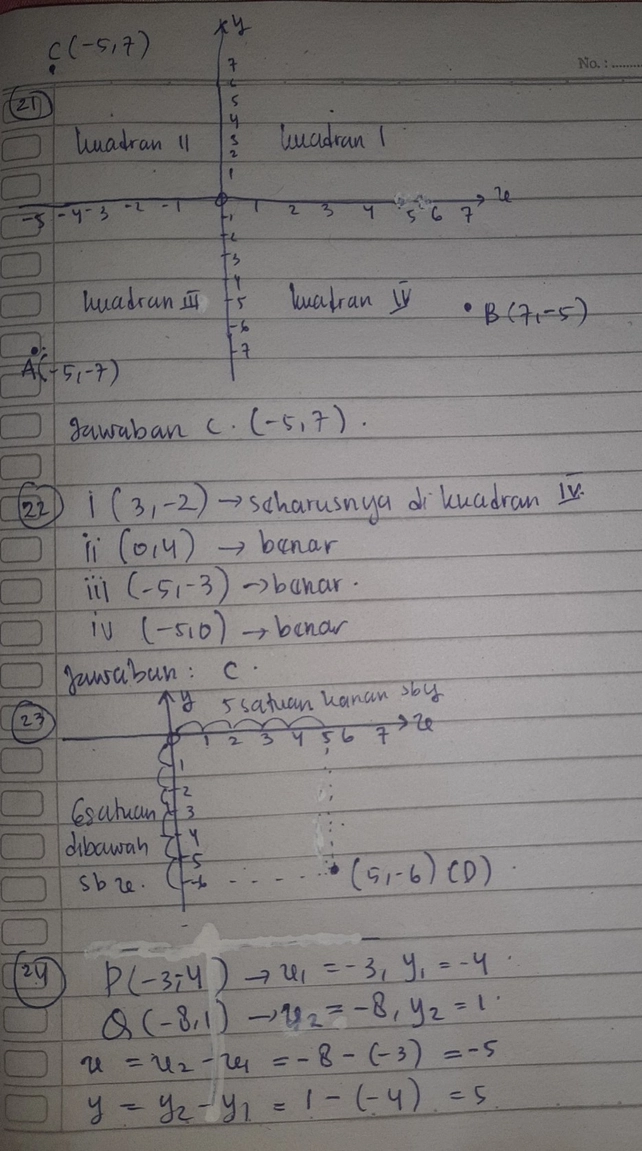 C(-5,7)
y
No.:
7
6
5
4
3
2
1
21
Kuadran II Kuadran I
x
-5 -4 -3 -2 -1 1 2 3 4 5 6 7
-1
-2
-3
-4
-5
-6
-7
Kuadran III Kuadran IV
B(7,-5)
A(-5,-7)
Jawaban C. (-5,7).
22 i (3,-2) → seharusnya di kuadran IV.
ii (0,4) → benar
iii (-5,-3) → benar.
iv (-5,0) → benar
Jawaban : C.
23
y 5 satuan kanan sby
x
1 2 3 4 5 6 7
1
-2
3
4
-5
-6
6 satuan
dibawah
sb x.
(5,-6) (D)
24 P(-3,-4) → x₁ = -3, y₁ = -4.
Q(-8,1) → x₂ = -8, y₂ = 1.
x = x₂ - x₁ = -8 - (-3) = -5
y = y₂ - y₁ = 1 - (-4) = 5